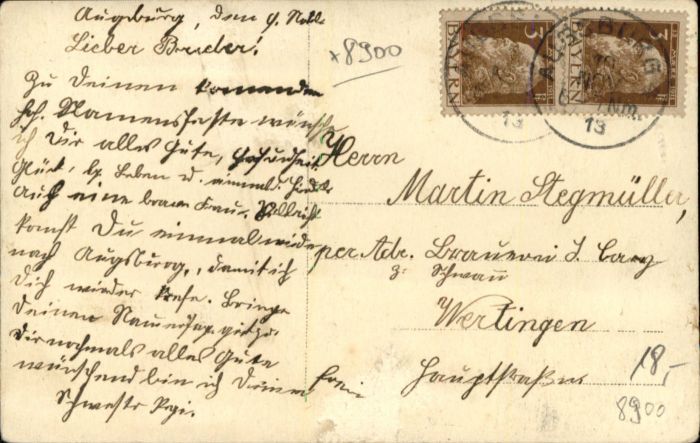 Augsburg, den 9. Nov.
Lieber Bruder.
Zu Deinen kommenden
Namensfeste wünsche
ich Dir alles Gute, Gesundheit
Glück, Leben u.
Auch eine brave Frau. Vielleicht
komst Du einmal wieder
nach Augsburg, damit ich
Dich wieder trefe. Bringe
Deinen
Dir nochmals alles Gute
wünschend bin ich Deine
Schwester
+8900
BAYERN 3
BAYERN 3
AUGSBURG
NOV.
Nm.
13
13
Herrn
Martin Stegmüller,
per Adr. Brauerei J.
z. Schwan
Wertingen
frei Hauptstraße
18,-
8900